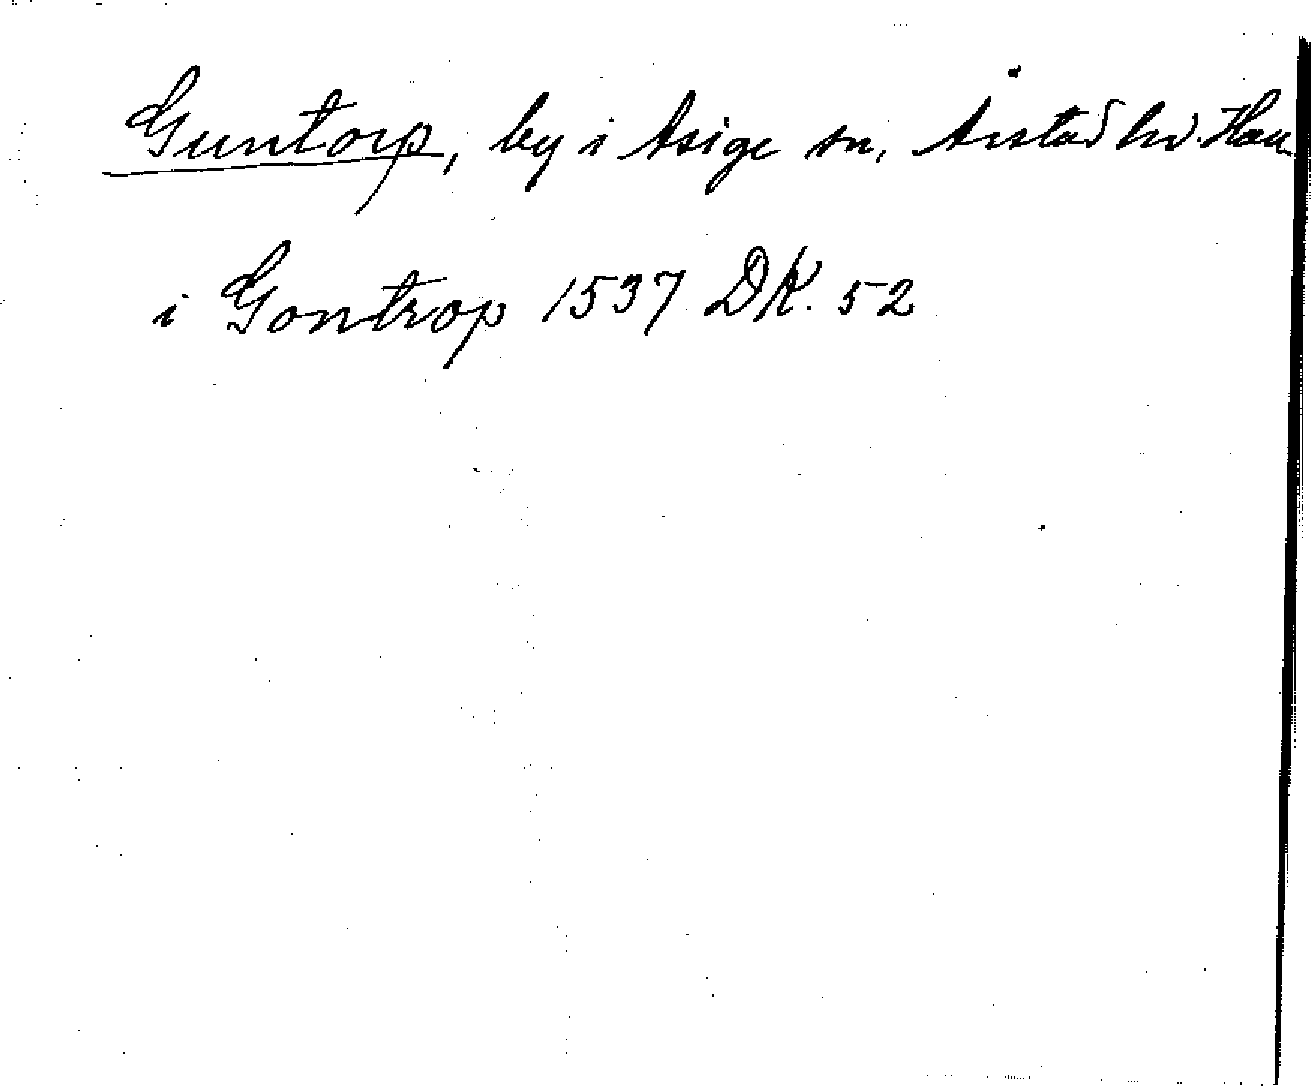 Guntorp, by i Asige sn, Årstad hd. Hall
i Gontrop 1537 DK. 52